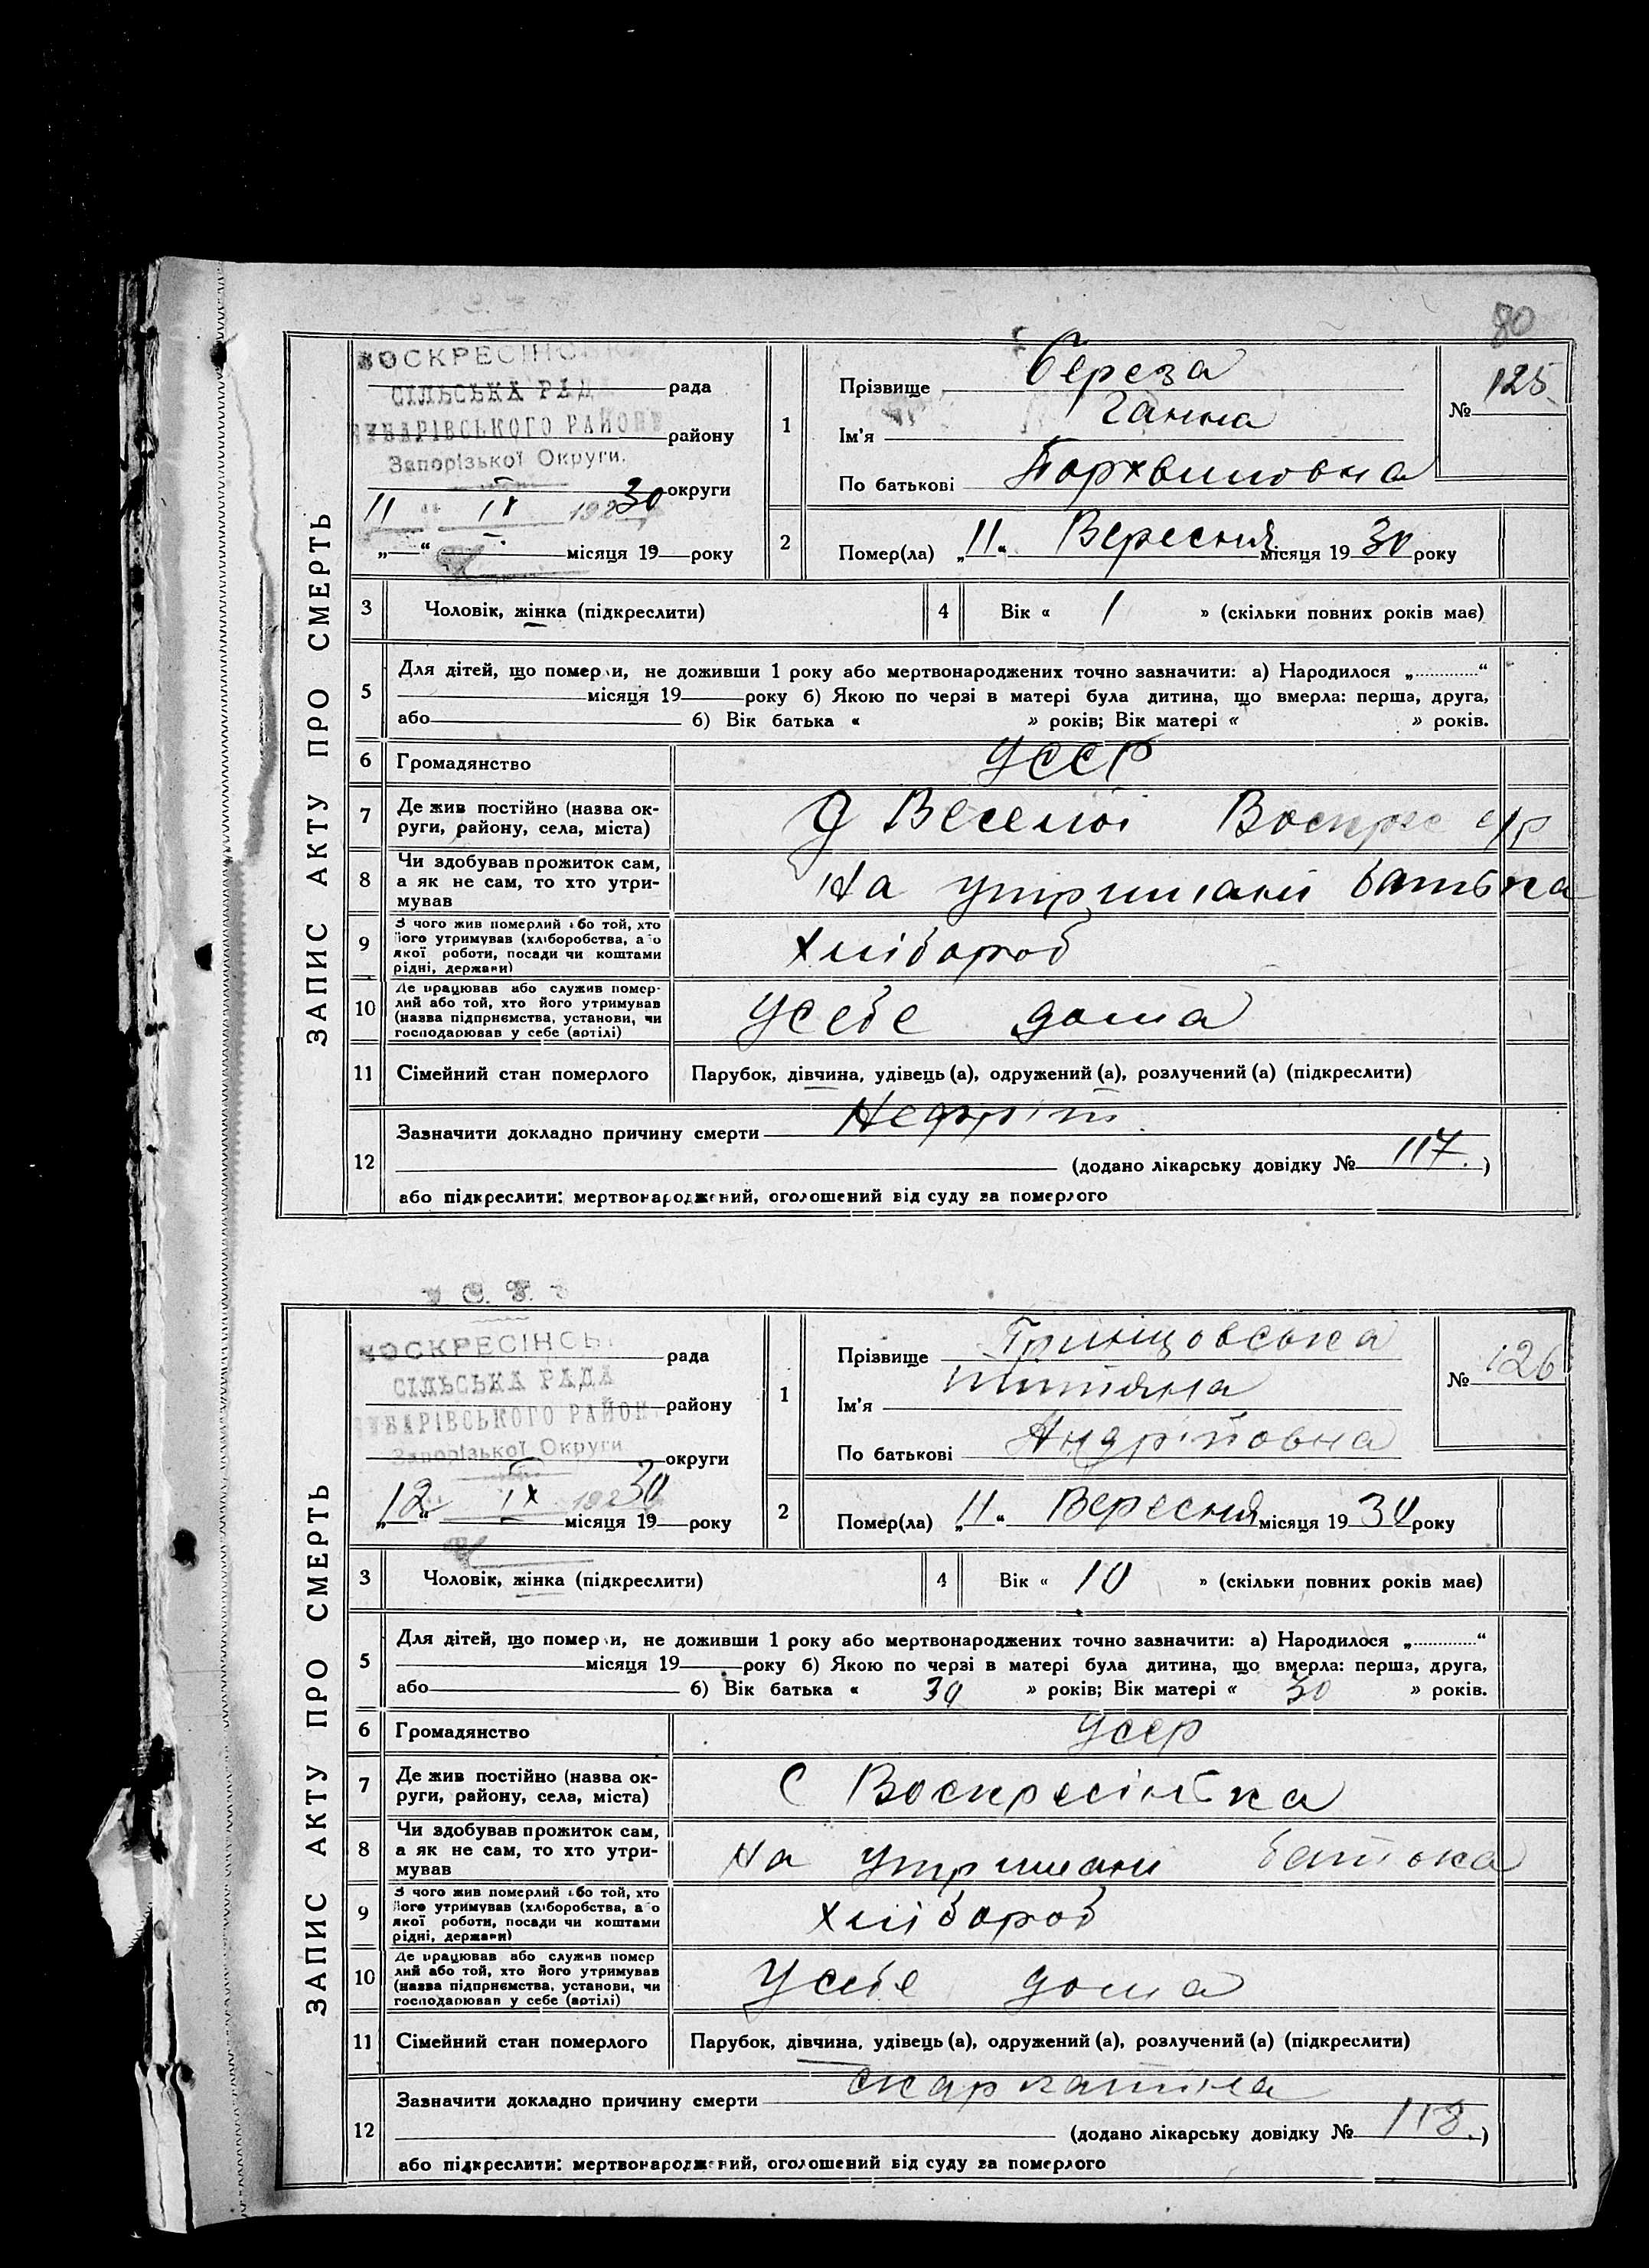 80
ЗАПИС АКТУ ПРО СМЕРТЬ
ВОСКРЕСІНСЬКА
СІЛЬСЬКА РАДА рада
ЧУБАРІВСЬКОГО РАЙОНУ району
Запорізької Округи.
округи
11 IX 1930
„ “ місяця 19 року
1
Прізвище Береза
Ім'я Ганна
По батькові Пархвиловна
№ 125
2
Помер(ла) „11“ Вересня місяця 1930 року
3 Чоловік, жінка (підкреслити)
4 Вік « 1 » (скільки повних років має)
5
Для дітей, що померли, не доживши 1 року або мертвонароджених точно зазначити: а) Народилося „ “
місяця 19 року б) Якою по черзі в матері була дитина, що вмерла: перша, друга,
або б) Вік батька « » років; Вік матері « » років.
6 Громадянство УССР
7 Де жив постійно (назва ок-
руги, району, села, міста)
Веселої Воскрес с/р
8 Чи здобував прожиток сам,
а як не сам, то хто утри-
мував
На утримани батька
9 З чого жив померлий або той, хто
його утримував (хліборобства, або
якої роботи, посади чи коштами
рідні, держави)
Хлібороб
10 Де працював або служив помер-
лий або той, хто його утримував
(назва підприємства, установи, чи
господарював у себе (артілі)
Усебе дома
11 Сімейний стан померлого Парубок, дівчина, удівець (а), одружений (а), розлучений (а) (підкреслити)
12
Зазначити докладно причину смерти Нефріт
(додано лікарську довідку № 117.)
або підкреслити: мертвонароджений, оголошений від суду за померлого
ЗАПИС АКТУ ПРО СМЕРТЬ
У. С. Р. Р.
ВОСКРЕСІНСЬКА рада
СІЛЬСЬКА РАДА
ЧУБАРІВСЬКОГО РАЙОНУ району
Запорізької Округи
округи
„12“ IX 1930 місяця 19 року
1
Прізвище Гринцовська
Ім'я
По батькові Андрійовна
№ 126
2
Помер(ла) „11“ Вересня місяця 1930 року
3 Чоловік, жінка (підкреслити)
4 Вік « 10 » (скільки повних років має)
5
Для дітей, що померли, не доживши 1 року або мертвонароджених точно зазначити: а) Народилося „ “
місяця 19 року б) Якою по черзі в матері була дитина, що вмерла: перша, друга,
або б) Вік батька « 30 » років; Вік матері « 30 » років.
6 Громадянство Усср
7 Де жив постійно (назва ок-
руги, району, села, міста)
С Воскресінка
8 Чи здобував прожиток сам,
а як не сам, то хто утри-
мував
На утримани батька
9 З чого жив померлий або той, хто
його утримував (хліборобства, або
якої роботи, посади чи коштами
рідні, держави)
Хлібороб
10 Де працював або служив помер
лий або той, хто його утримував
(назва підприємства, установи, чи
господарював у себе (артілі)
Усебе дома
11 Сімейний стан померлого Парубок, дівчина, удівець (а), одружений (а), розлучений (а) (підкреслити)
12
Зазначити докладно причину смерти скарлатина
(додано лікарську довідку № 118.)
або підкреслити: мертвонароджений, оголошений від суду за померлого